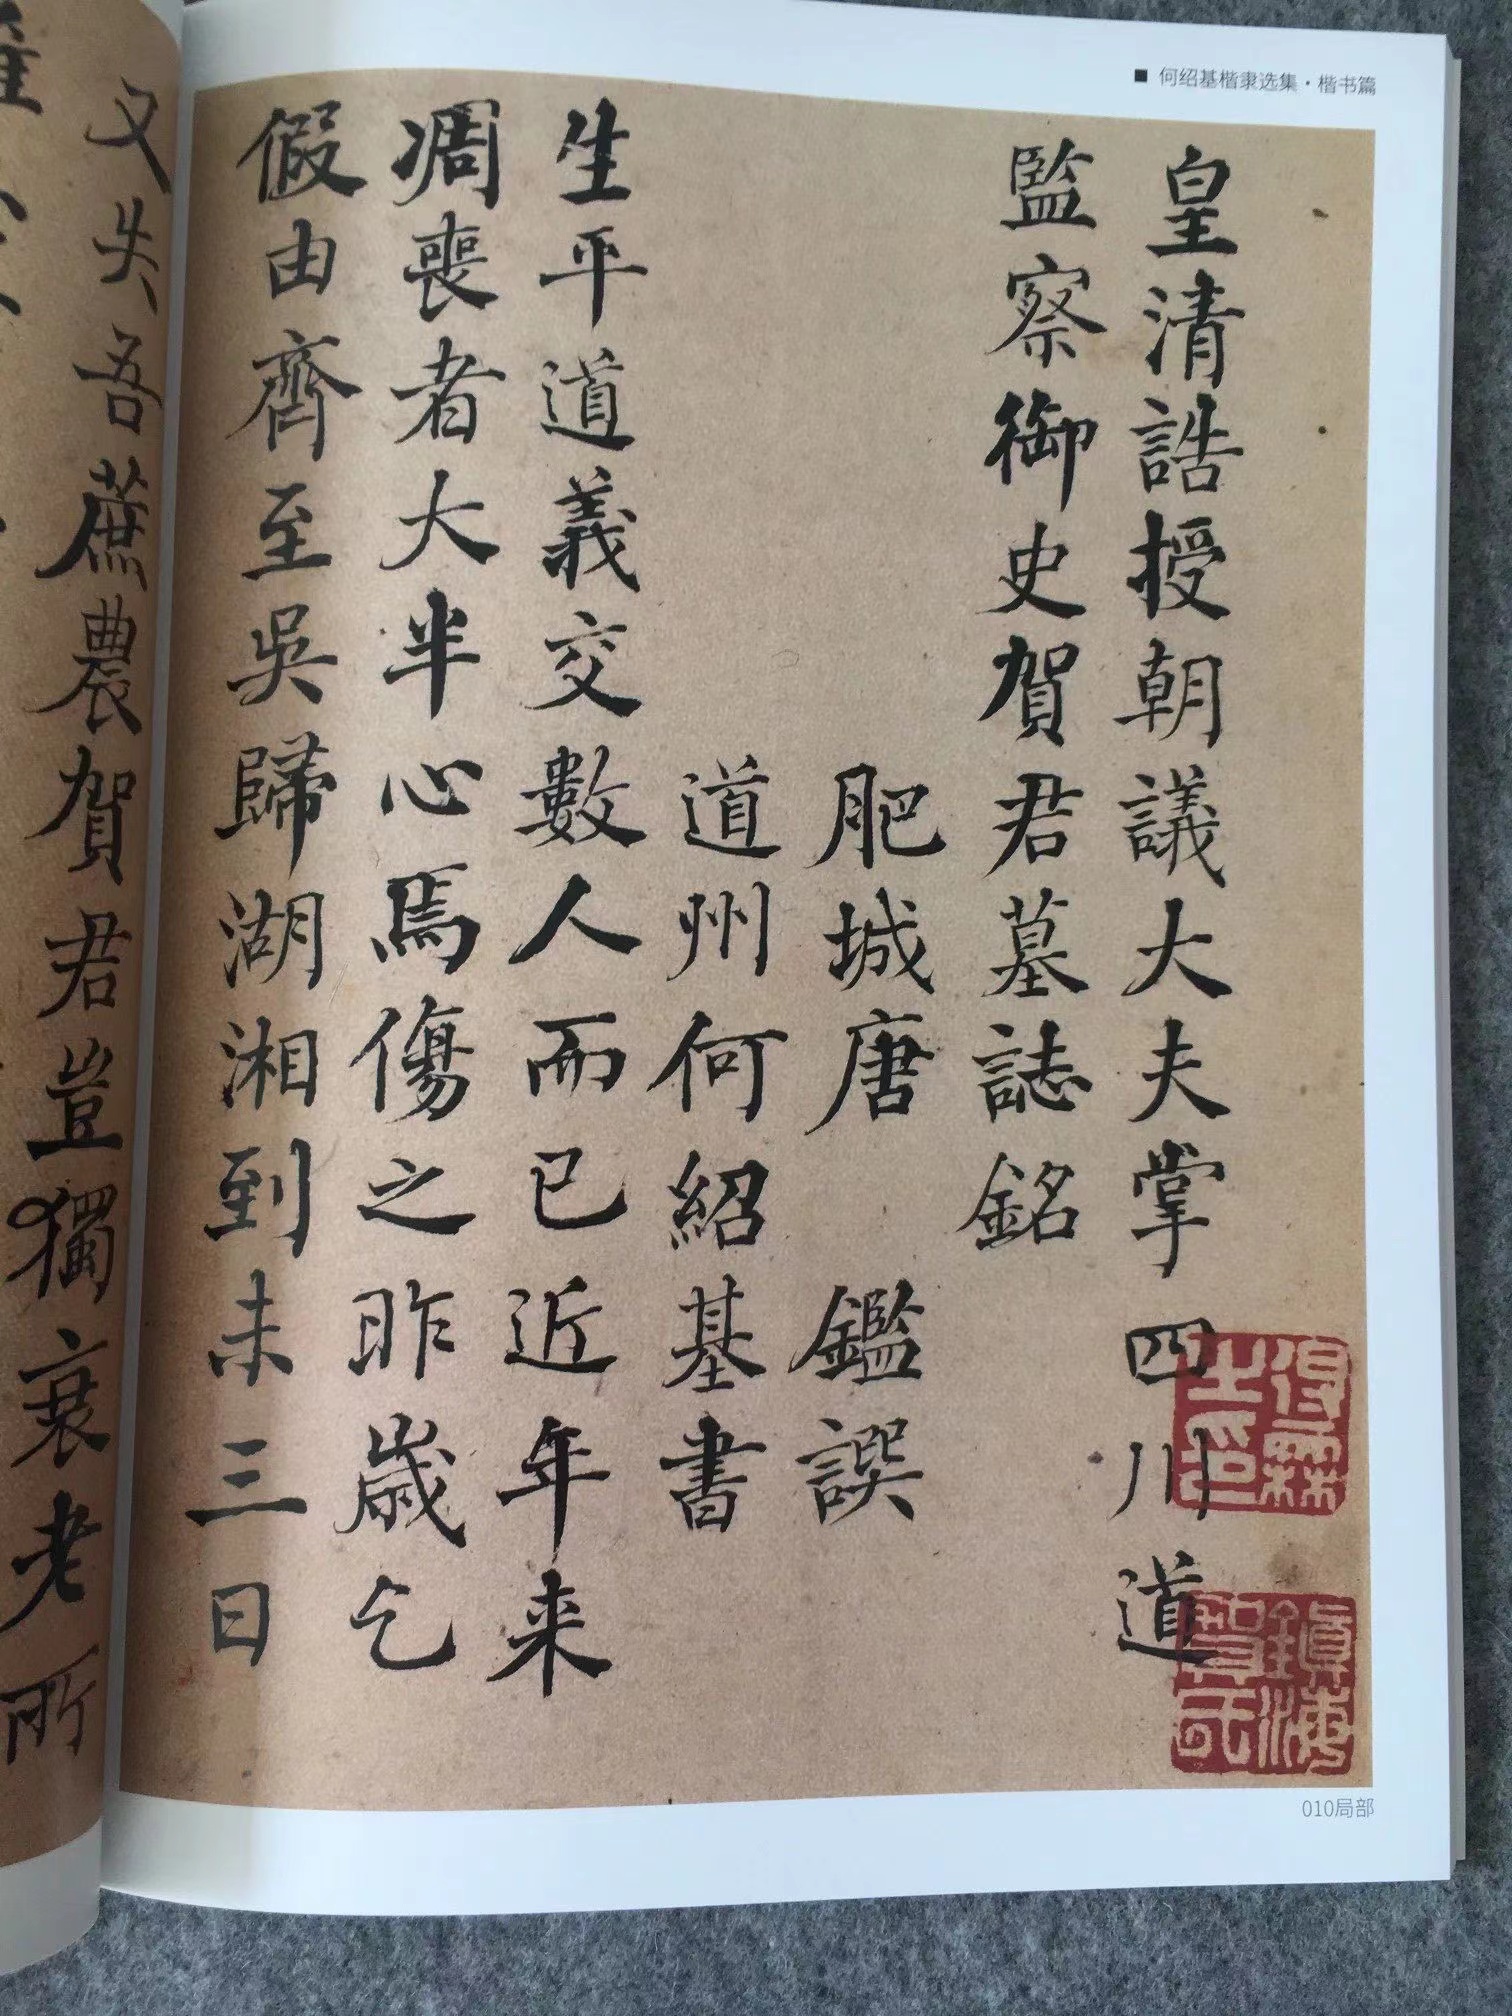 ■ 何绍基楷隶选集·楷书篇
皇清誥授朝議大夫掌四川道
監察御史賀君墓誌銘
肥城唐鑑譔
道州何紹基書
生平道義交數人而已近年来
凋喪者大半心焉傷之昨歲乞
假由齊至吳歸湖湘到未三日
又失吾蔗農賀君豈獨衰老所
010局部